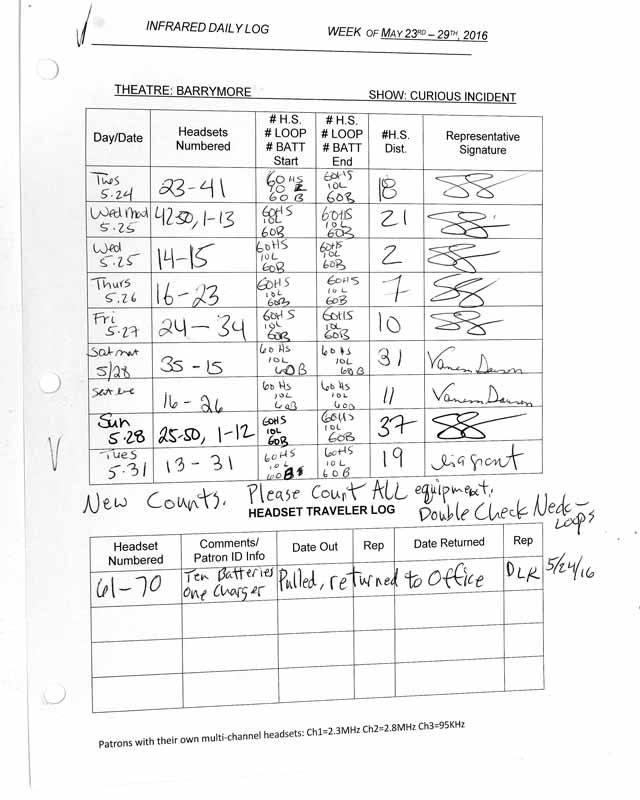 INFRARED DAILY LOG WEEK OF MAY 23RD – 29TH, 2016
THEATRE: BARRYMORE SHOW: CURIOUS INCIDENT
Day/Date Headsets Numbered # H.S. # LOOP # BATT Start # H.S. # LOOP # BATT End #H.S. Dist. Representative Signature
Tues 5.24 23-41 60HS 10L 60B 60HS 10L 60B 18
Wed Mat 5.25 42-50, 1-13 60HS 10L 60B 60HS 10L 60B 21
Wed 5.25 14-15 60HS 10L 60B 60HS 10L 60B 2
Thurs 5.26 16-23 60HS 10L 60B 60HS 10L 60B 7
Fri 5.27 24-34 60HS 10L 60B 60HS 10L 60B 10
Sat mat 5/28 35-15 60 HS 10L 60B 60 HS 10L 60B 31
sat eve 16-26 60 HS 10L 60B 60 HS 10L 60B 11
Sun 5.28 25-50, 1-12 60HS 10L 60B 60HS 10L 60B 37
Tues 5.31 13-31 60HS 10L 60B 60HS 10L 60B 19
New Counts. Please Count ALL equipment.
Double Check Neck-Loops
HEADSET TRAVELER LOG
Headset Numbered Comments/ Patron ID Info Date Out Rep Date Returned Rep
61-70 Ten Batteries One Charger Pulled, returned to Office DLR 5/24/16
Patrons with their own multi-channel headsets: Ch1=2.3MHz Ch2=2.8MHz Ch3=95KHz